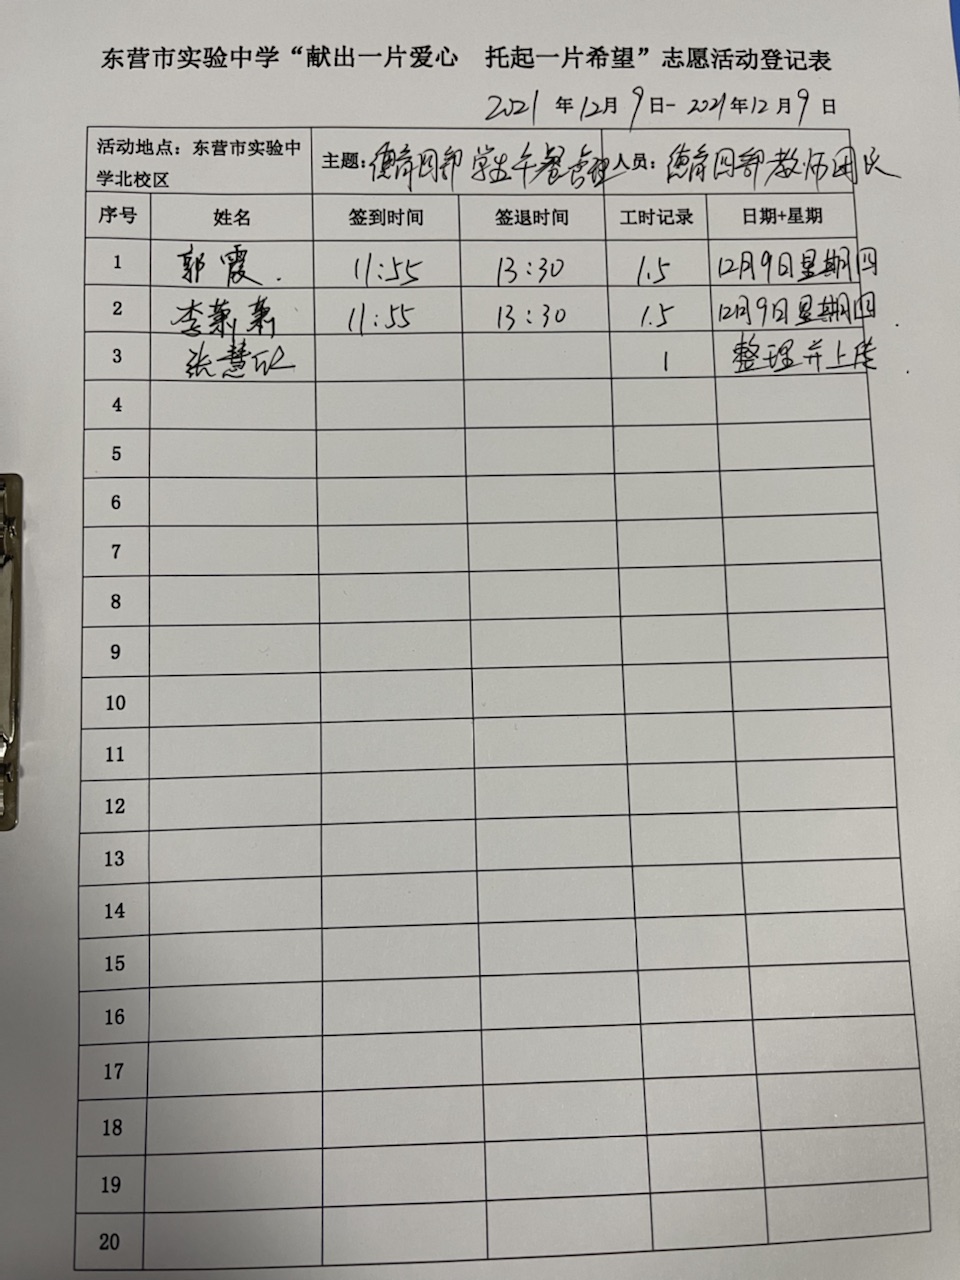 东营市实验中学“献出一片爱心 托起一片希望”志愿活动登记表
2021年12月9日-2021年12月9日
活动地点：东营市实验中学北校区 主题：德育四部学生午餐管理 人员：德育四部教师团员
序号 姓名 签到时间 签退时间 工时记录 日期+星期
1 郭霞. 11:55 13:30 1.5 12月9日星期四
2 李萧萧 11:55 13:30 1.5 12月9日星期四
3 张慧欣 1 整理并上传
4
5
6
7
8
9
10
11
12
13
14
15
16
17
18
19
20